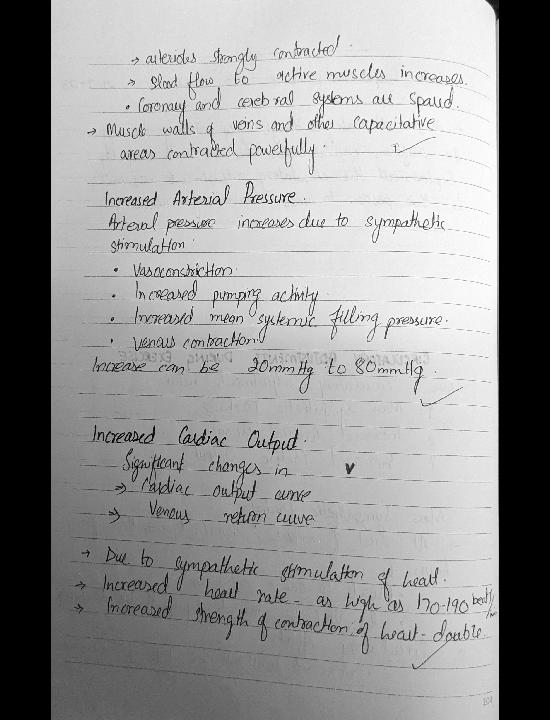 → arterioles strongly contracted.
→ Blood flow to active muscles increases.
• Coronary and cerebral systems are spared.
→ Muscle walls of veins and other capacitative
areas contracted powerfully.
Increased Arterial Pressure.
Arterial pressure increases due to sympathetic
stimulation.
• Vasoconstriction.
• Increased pumping activity.
• Increased mean systemic filling pressure.
• Venous contraction.
Increase can be 20mmHg to 80mmHg.
Increased Cardiac Output.
Significant changes in
→ Cardiac output curve
→ Venous return curve
→ Due to sympathetic stimulation of heart.
→ Increased heart rate - as high as 170-190 beat/m
→ Increased strength of contraction of heart - double.